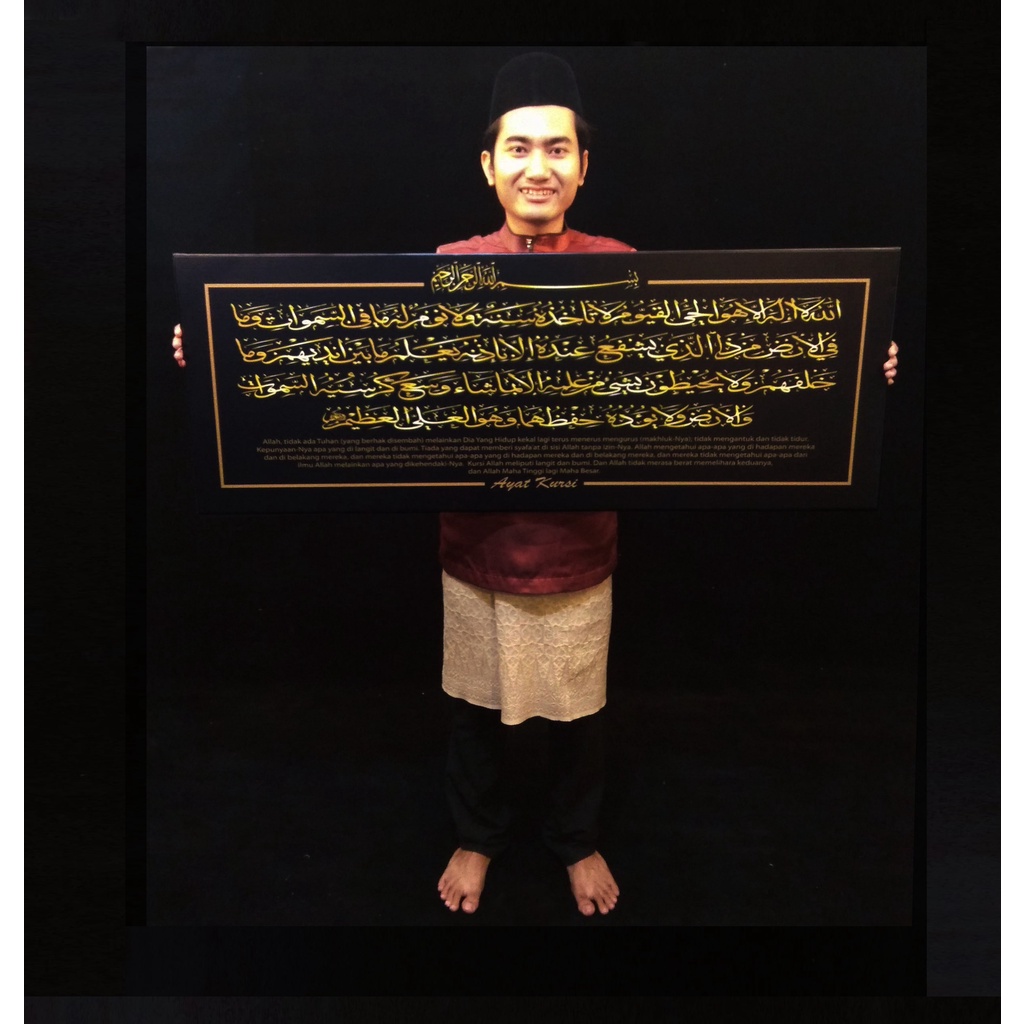 بسم الله الرحمن الرحيم
الله لا اله الا هو الحي القيوم لا تاخذه سنة ولا نوم له ما في السموات وما
في الارض من ذا الذي يشفع عنده الا باذنه يعلم ما بين ايديهم وما
خلفهم ولا يحيطون بشيء من علمه الا بما شاء وسع كرسيه السموات
والارض ولا يؤده حفظهما وهو العلي العظيم
Allah, tidak ada Tuhan (yang berhak disembah) melainkan Dia Yang Hidup kekal lagi terus menerus mengurus (makhluk-Nya); tidak mengantuk dan tidak tidur.
Kepunyaan-Nya apa yang di langit dan di bumi. Tiada yang dapat memberi syafa'at di sisi Allah tanpa izin-Nya. Allah mengetahui apa-apa yang di hadapan mereka
dan di belakang mereka, dan mereka tidak mengetahui apa-apa yang di hadapan mereka dan di belakang mereka, dan mereka tidak mengetahui apa-apa dari
ilmu Allah melainkan apa yang dikehendaki-Nya. Kursi Allah meliputi langit dan bumi. Dan Allah tidak merasa berat memelihara keduanya,
dan Allah Maha Tinggi lagi Maha Besar.
Ayat Kursi